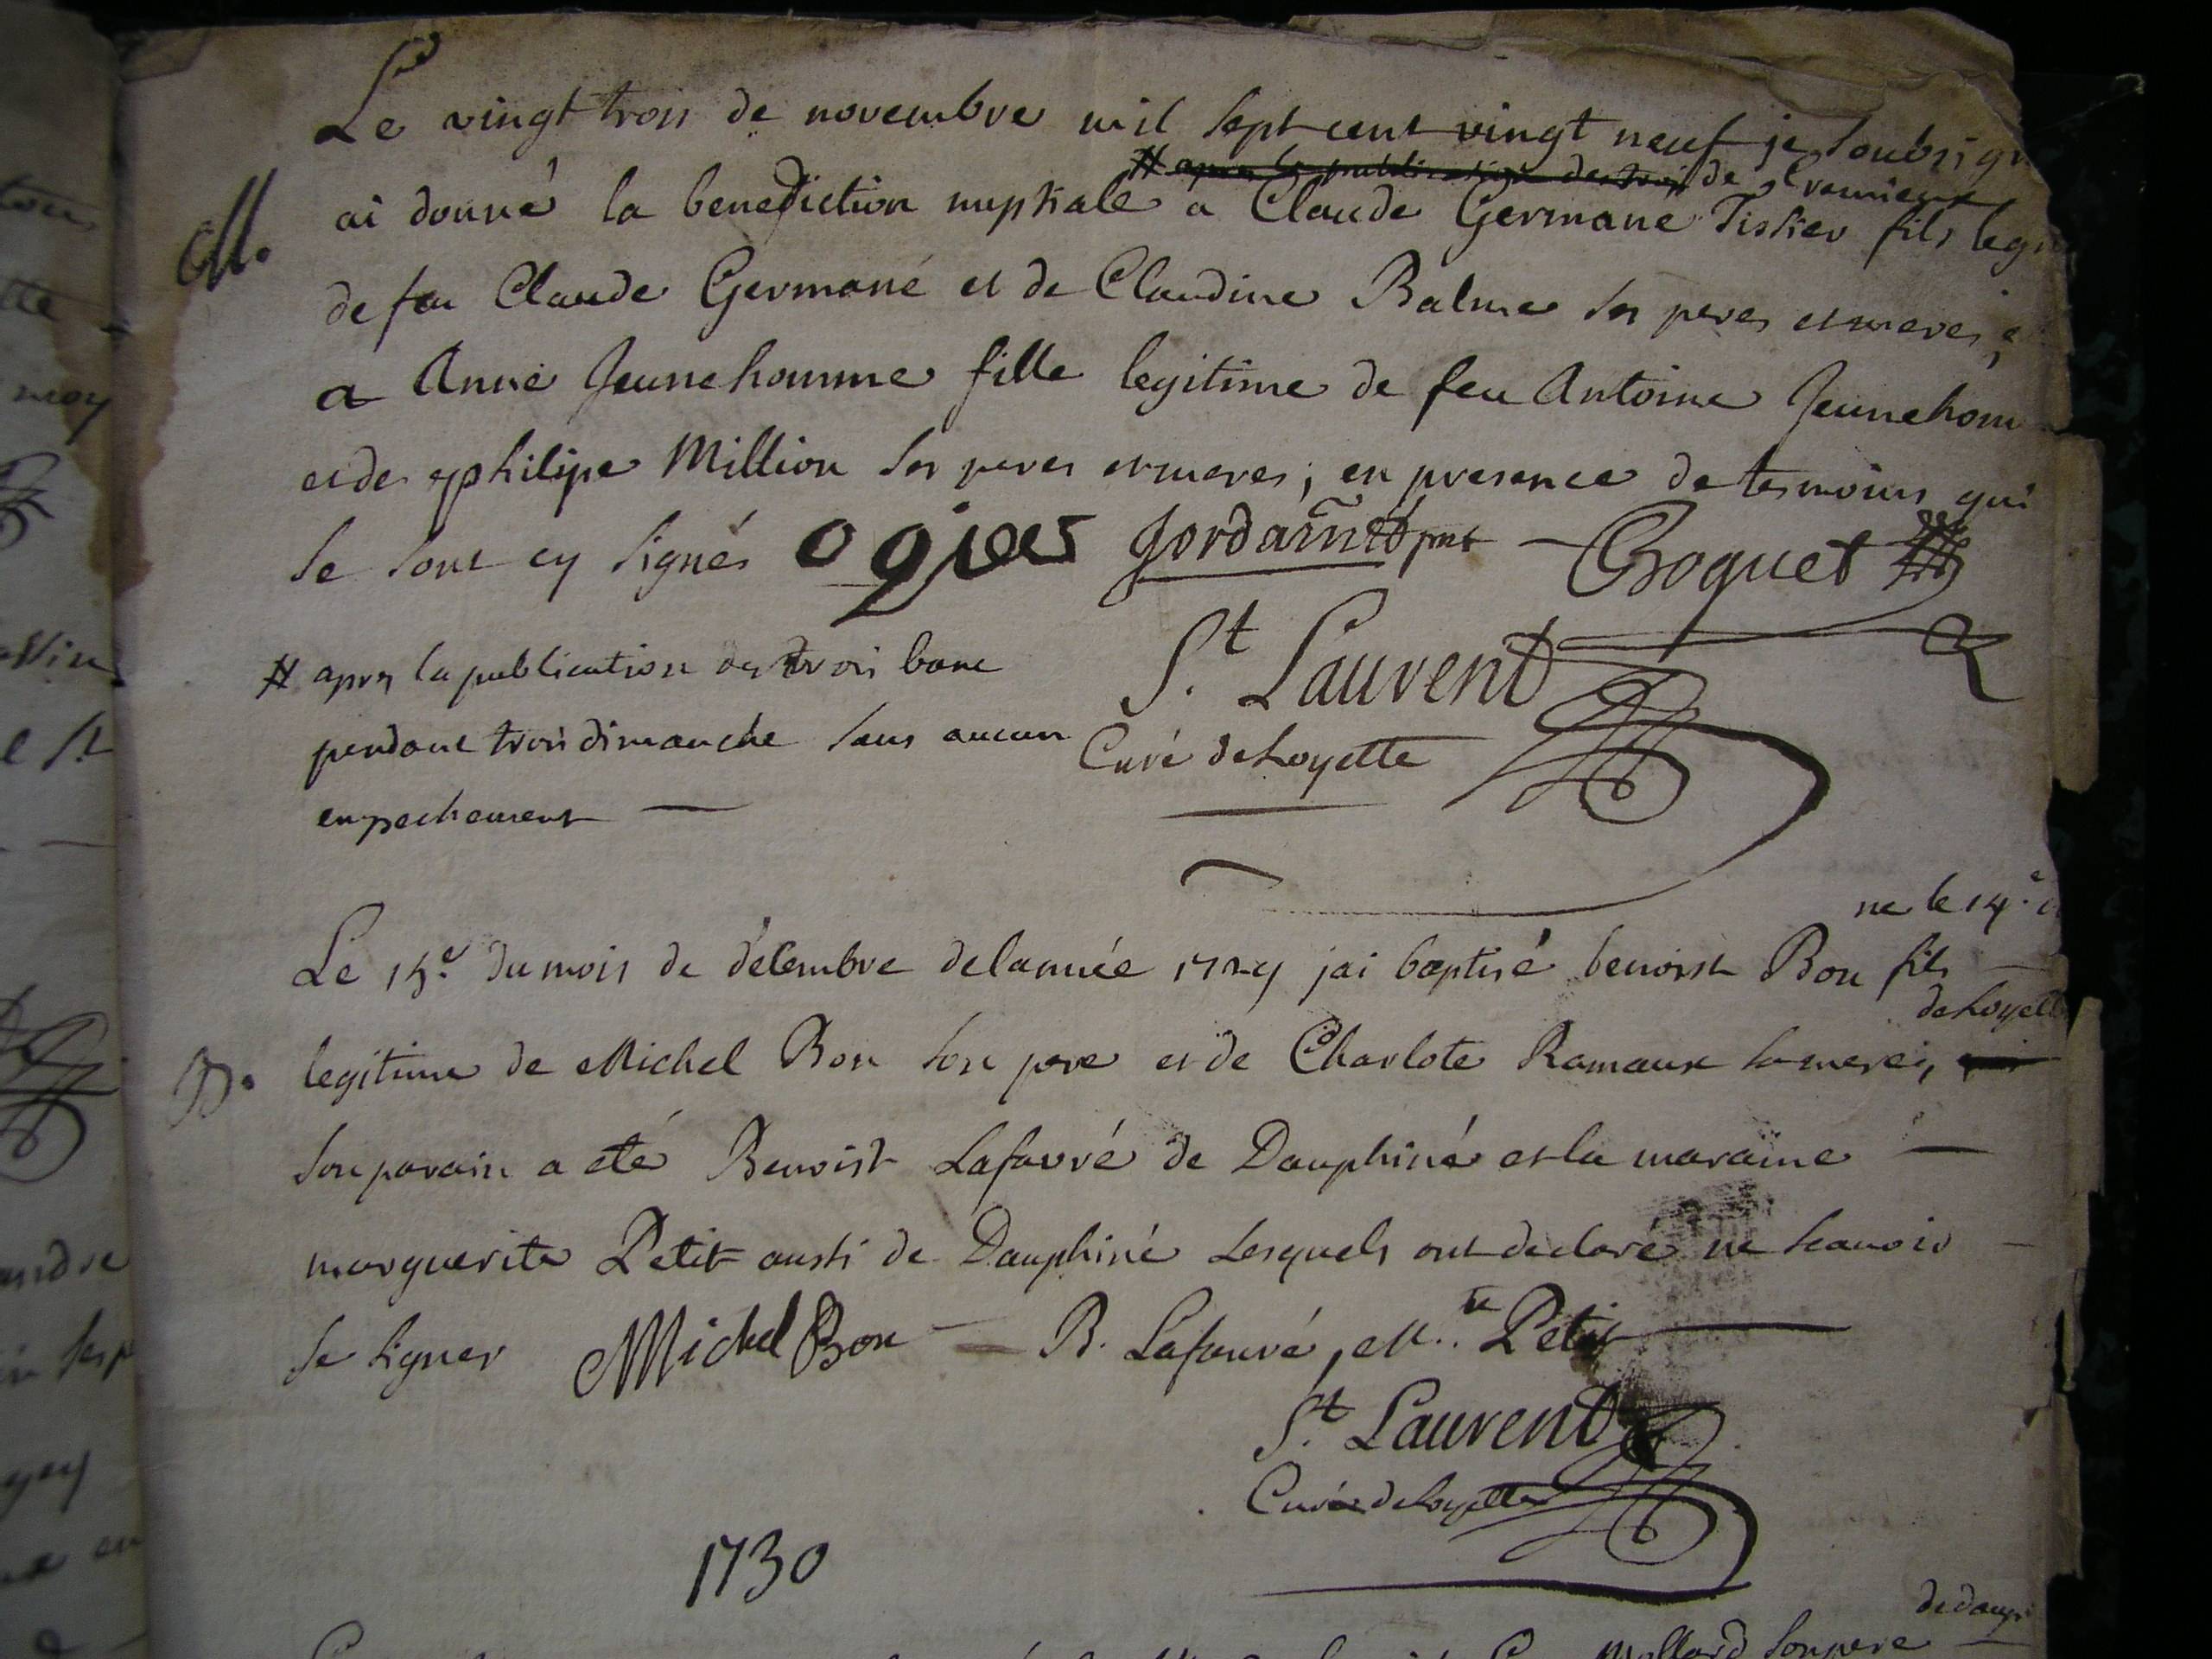 Le vingt trois de novembre mil sept cent vingt neuf je soubsign
# apres la publication des trois de st romient
M. ai donné la benediction nuptiale a Claude Germané Tissier fils legi
de feu Claude Germané et de Claudine Balme ses peres et meres, e
a Anne Jeunehomme fille legitime de feu Antoine Jeunehom
et de philipe Million ses peres et meres, en presence de tesmoins qui
se sont cy signés ogier Jordain pnt Croguet
# apres la publication des trois banc
pendant trois dimanche sans aucun
empechement
St. Laurent
Curé de Loyette
ne le 14e. d
Le 15e. du mois de décembre de lannée 1729 jai baptisé benoist Bon fils
de Loyett
B. legitime de Michel Bon son pere et de Charlote Ramaux sa mere,
son parain a eté Benoist Lafavré de Dauphiné et la maraine
marguerite Petit aussi de Dauphiné Lesquels ont declaré ne scavoir
se signer Michel Bon B. Lafauré, M.te Petit
St. Laurent
Curé de Loyette
1730
de daup
Mollard son pere